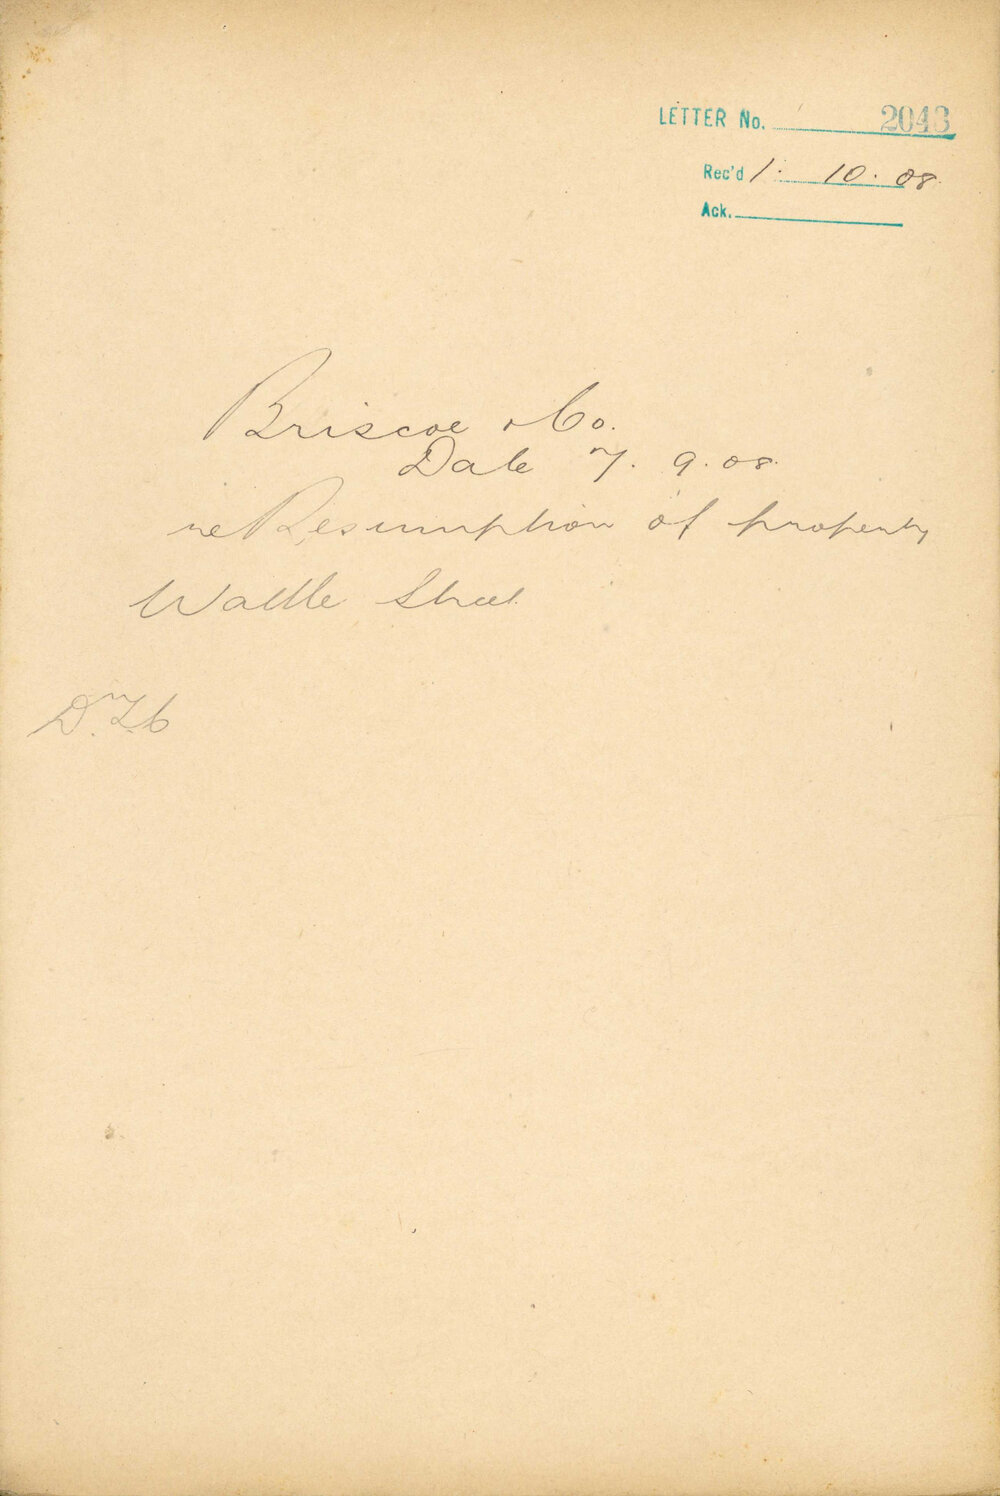 LETTER No. 2043
Rec'd 1. 10. 08.
Ack.
Briscoe & Co.
Date 7. 9. 08.
re Resumption of property
Wattle Street.